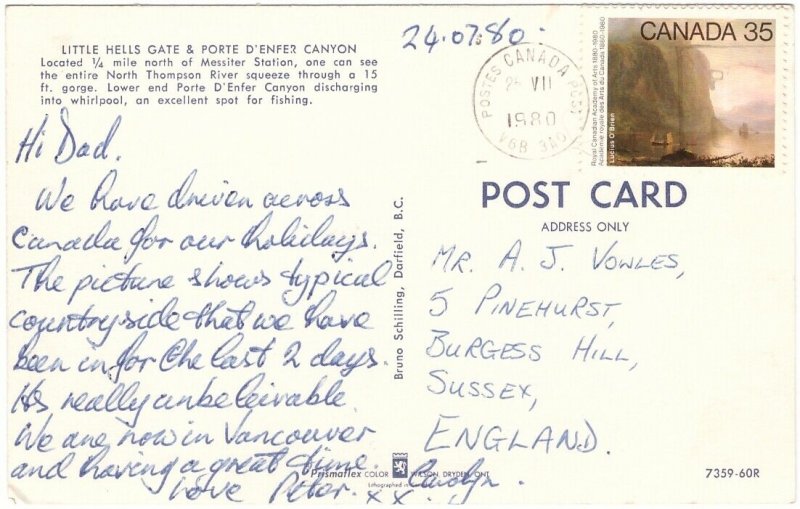 LITTLE HELLS GATE & PORTE D'ENFER CANYON
Located ¼ mile north of Messiter Station, one can see
the entire North Thompson River squeeze through a 15
ft. gorge. Lower end Porte D'Enfer Canyon discharging
into whirlpool, an excellent spot for fishing.
24.07.80.
POSTES CANADA POST
VII
1980
V6B 3A0
CANADA 35
Royal Canadian Academy of Arts 1880-1980
Académie royale des Arts du Canada 1880-1980
Lucius O'Brien
Hi Dad.
We have driven across
Canada for our holidays.
The picture shows typical
countryside that we have
been in for the last 2 days.
Its really unbeleivable.
We are now in Vancouver
and having a great time.
Love Peter. xx Carolyn.
Bruno Schilling, Darfield, B.C.
POST CARD
ADDRESS ONLY
MR. A. J. VOWLES,
5 PINEHURST,
BURGESS HILL,
SUSSEX,
ENGLAND.
Prismaflex COLOR WILSON, DRYDEN, ONT.
Lithographed in
7359-60R